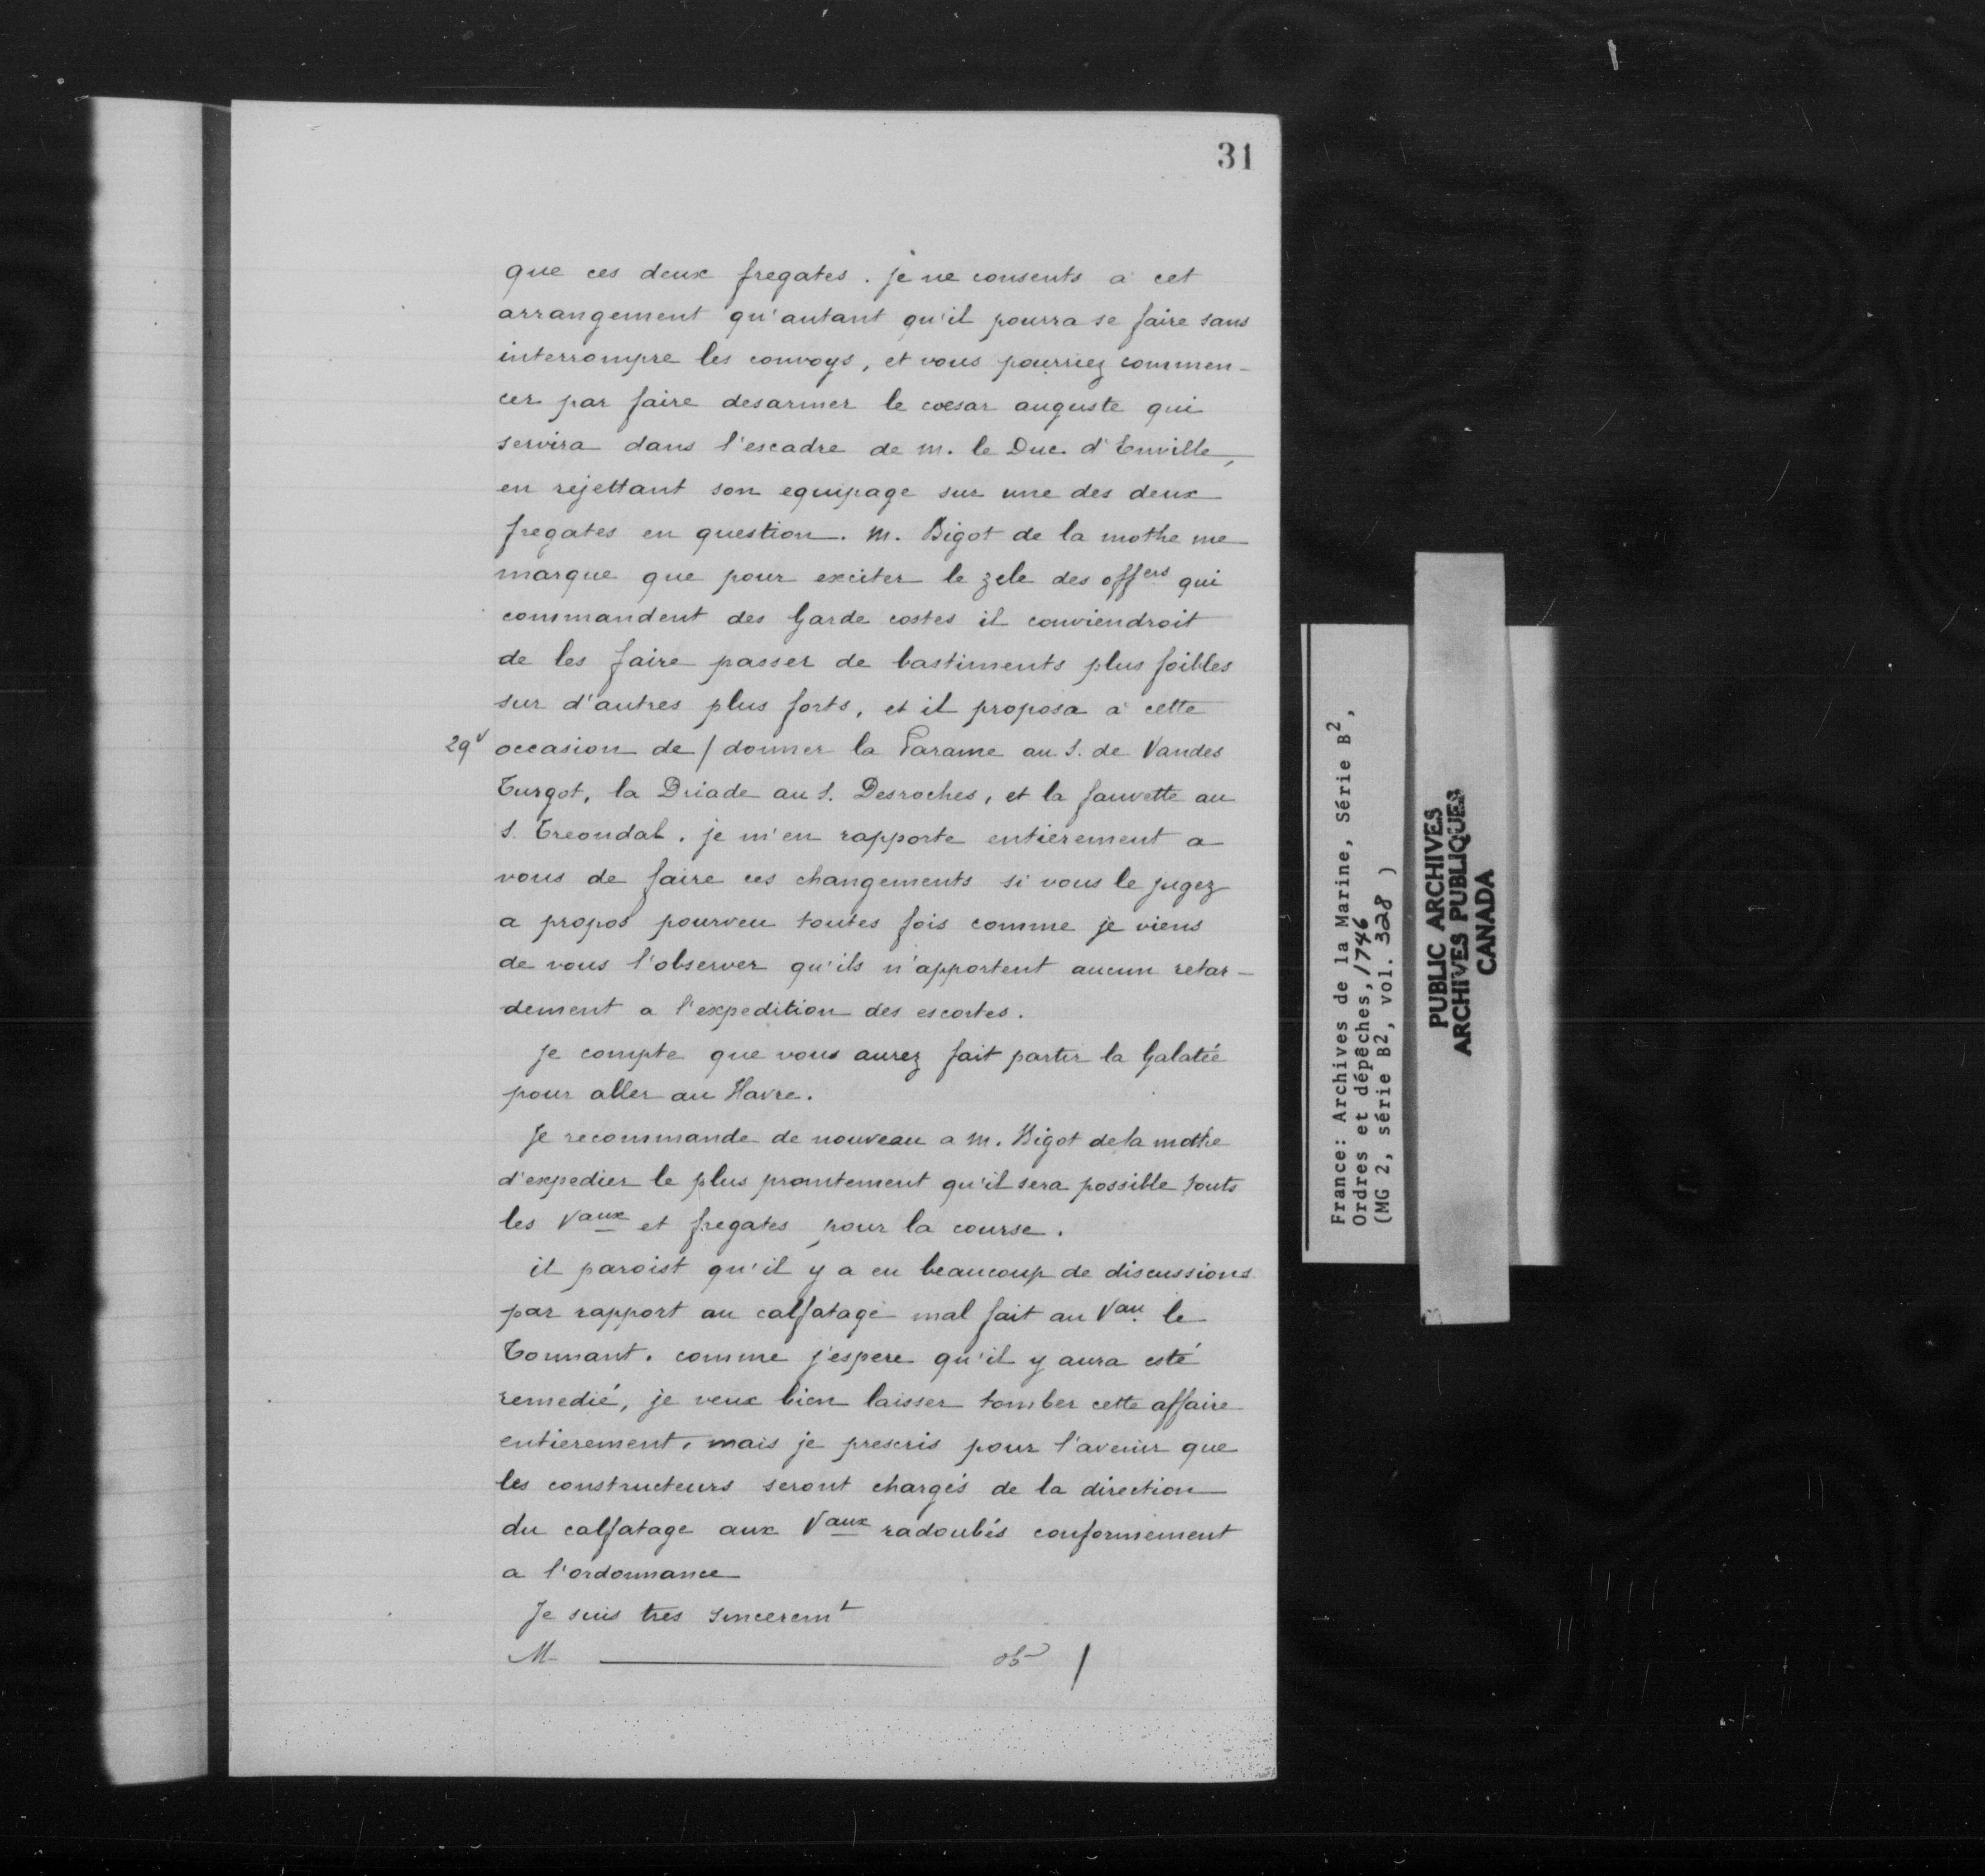 31
que ces deux fregates. je ne consents à cet
arrangement qu'autant qu'il pourra se faire sans
interrompre les convoys, et vous pourriez commen-
cer par faire desarmer le cœsar auguste qui
servira dans l'escadre de m. le Duc d'Enville,
en rejettant son equipage sur une des deux
fregates en question. M. Bigot de la mothe me
marque que pour exciter le zele des offers qui
commandent des Garde costes il conviendroit
de les faire passer de bastiments plus foibles
sur d'autres plus forts, et il proposa à cette
29v occasion de / donner la Parame au S. de Vandes
Turgot, la Driade au S. Desroches, et la fauvette au
S. Treondal. je m'en rapporte entierement a
vous de faire ces changements si vous le jugez
a propos pourveu toutes fois comme je viens
de vous l'observer qu'ils n'apportent aucun retar-
dement a l'expedition des escortes.
Je compte que vous aurez fait partir la Galatée
pour aller au Havre.
Je recommande de nouveau a M. Bigot de la mothe
d'expedier le plus promtement qu'il sera possible touts
les Vaux et fregates pour la course.
il paroist qu'il y a eu beaucoup de discussions
par rapport au calfatage mal fait au Vau. le
Tonnant. comme j'espere qu'il y aura esté
remedié, je veux bien laisser tomber cette affaire
entierement, mais je prescris pour l'avenir que
les constructeurs seront chargés de la direction
du calfatage aux Vaux radoubés conformement
a l'ordonnance
Je suis tres sincerem t
M
France: Archives de la Marine, Série B2,
Ordres et dépêches, 1746
(MG 2, série B2, vol. 328 )
PUBLIC ARCHIVES
ARCHIVES PUBLIQUES
CANADA